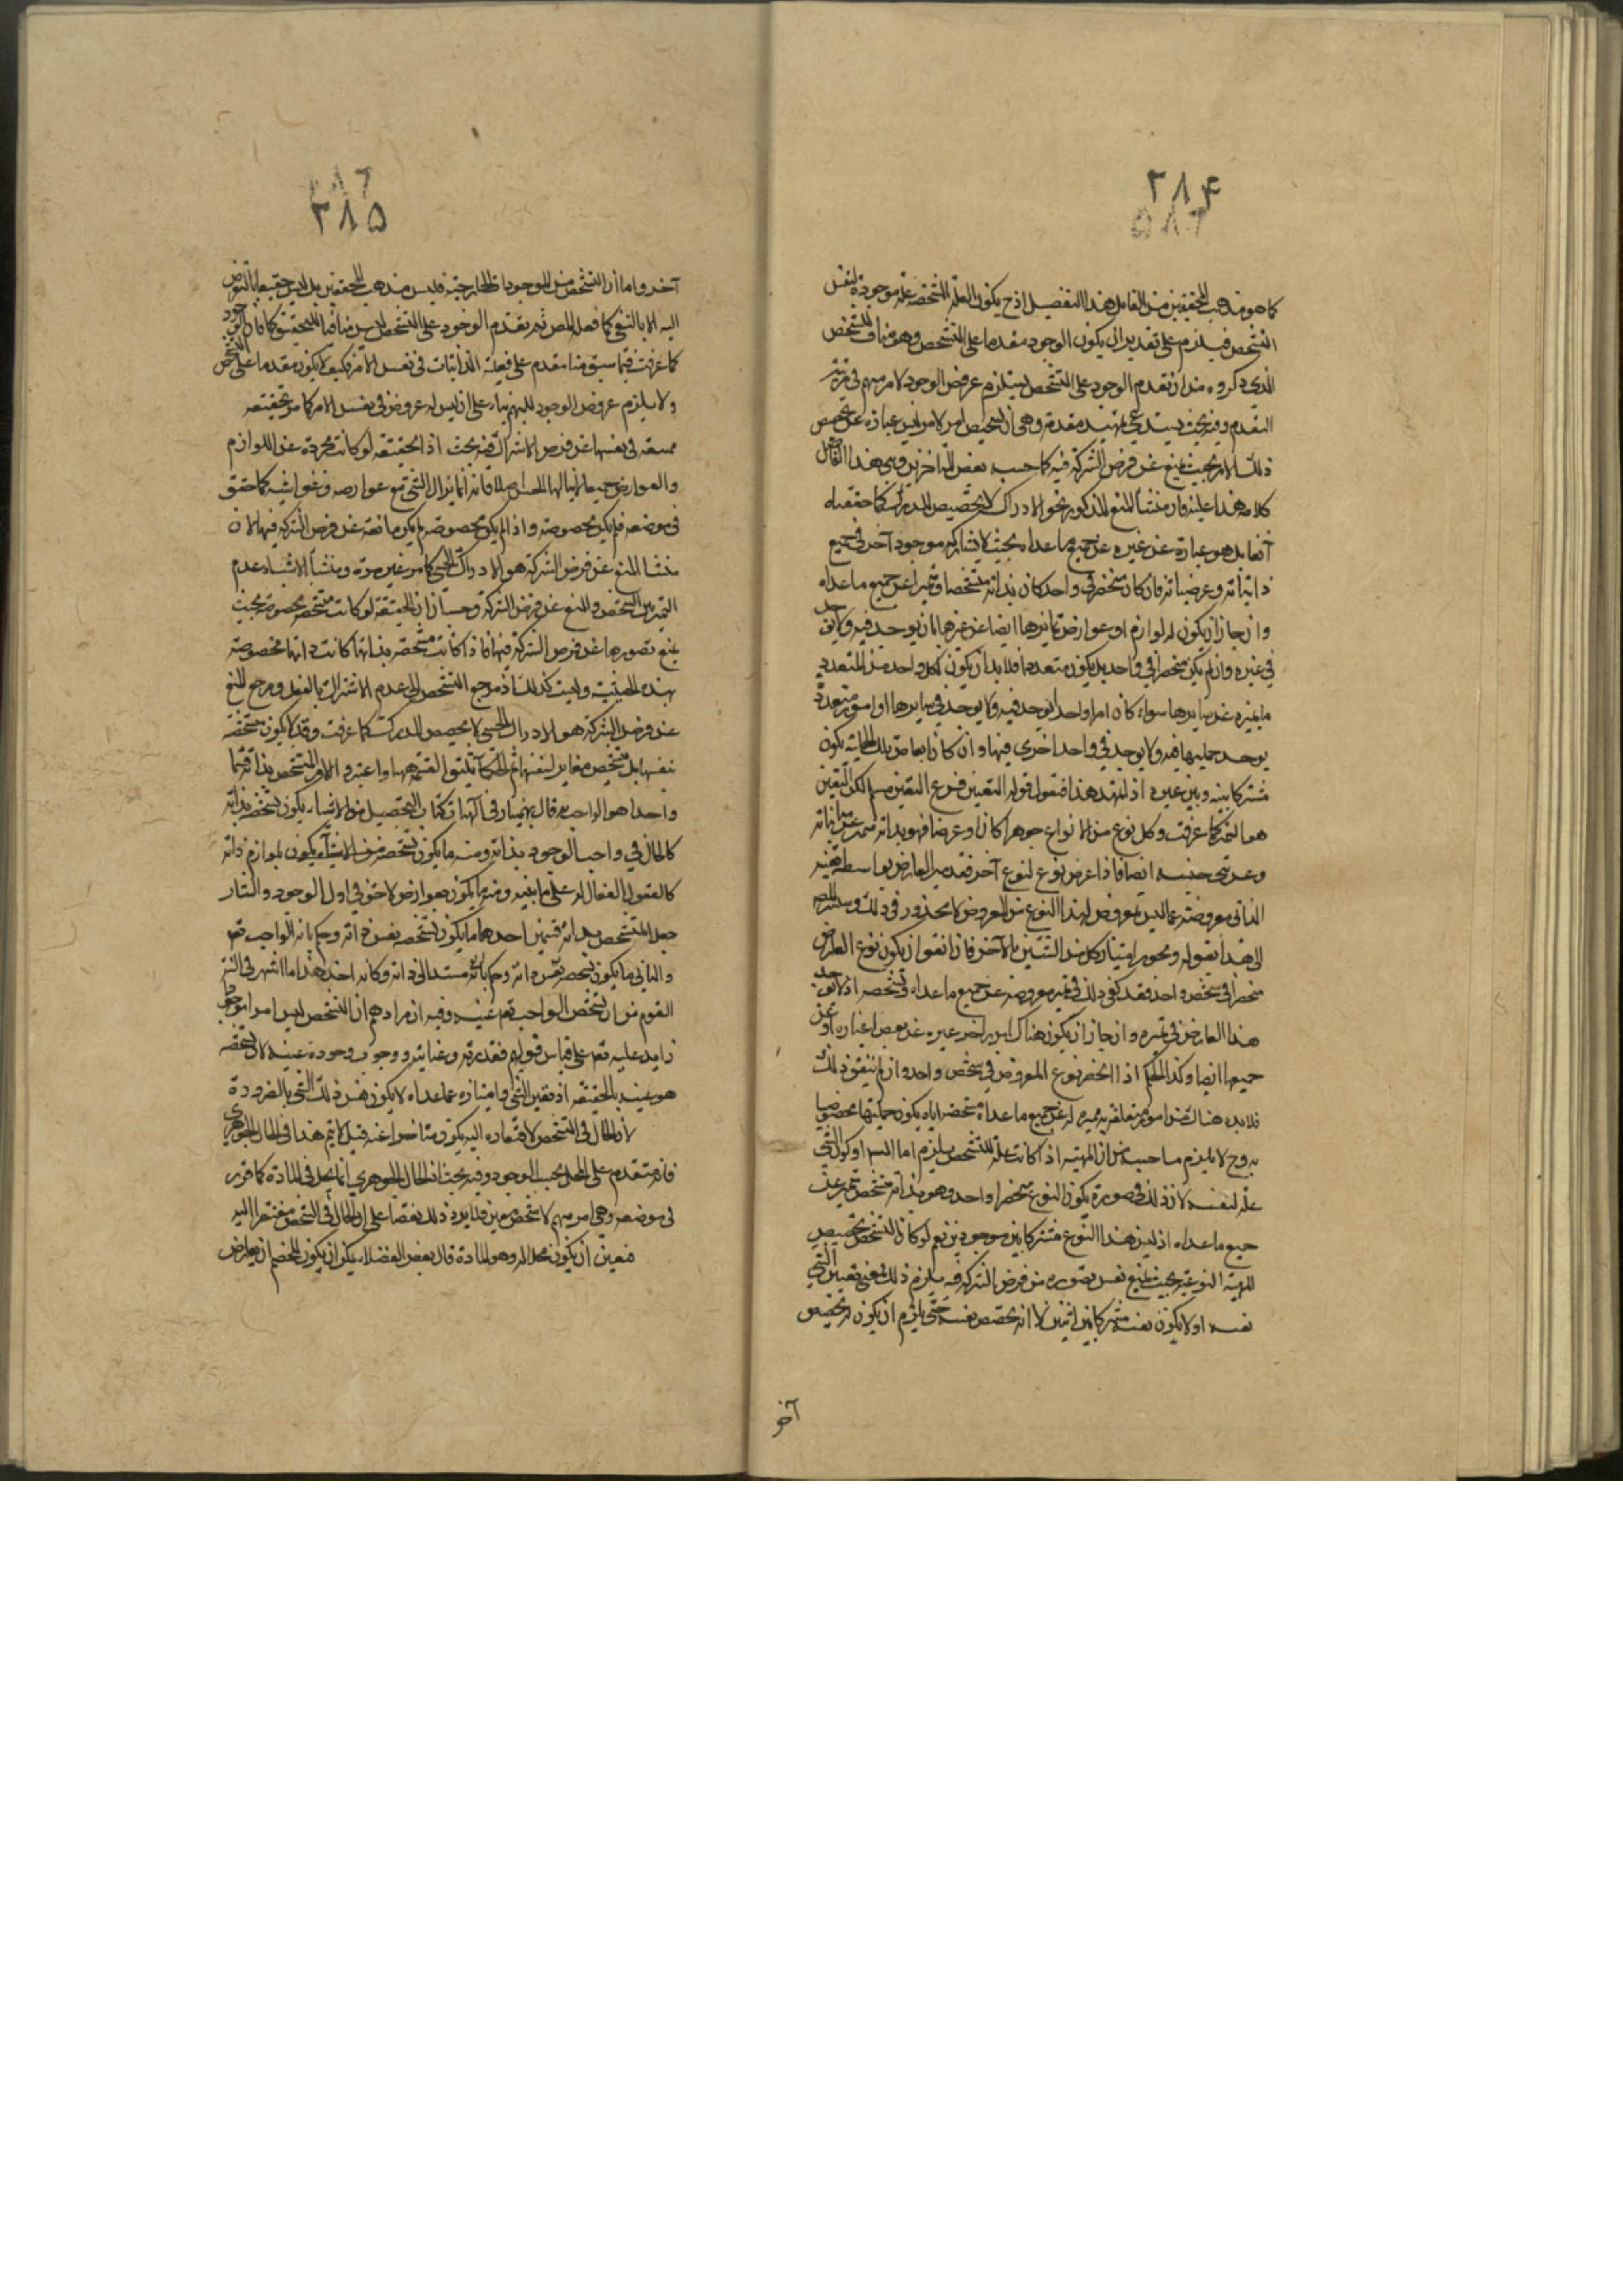 ٢٨٤
كما هو مذهب المحققين من القائل هذا التفصيل اذ ح يكون العلة للتشخص علة موجودة لنفس
التشخص فيلزم على تقدير ان يكون الوجود مقدما على التشخص وهو مناف للتشخص
الذي ذكروه من ان تقدم الوجود على التشخص يستلزم عروض الوجود لامر مبهم في مرتبة
التقدم وفيه بحث يستدعي تمهيد مقدمة وهي ان تشخيص امر لامر ليس عبارة عن تخصيص
ذلك الامر بحيث يمنع عن فرض الشركة فيه كما حسبه بعض المتأخرين وبنى هذا القائل
كلامه هذا عليه فان منشأ المنع المذكور نحو الادراك لا تخصيص المدرك كما حققناه
آنفا بل هو عبارة عن غيره عن جميع ما عداه بحيث لا يشاركه موجود آخر في جميع
ذاتياته وعرضياته فان كان شخص في واحد كان بذاته متشخصا وتميزا عن جميع ما عداه
وان جاز ان يكون له لوازم او عوارض تمايزها ايضا عن غيرها بان يوجد فيه ولا يوجد
في غيره وان لم يكن منحصرا في واحد بل يكون متعددا فلا بد ان يكون لكل واحد من المتعدد
ما يميزه عن سايرها سواء كان امرا واحدا يوجد فيه ولا يوجد في سايرها او امور متعددة
يوجد جملتها فيه ولا يوجد في واحد اخرى فيها وان كان ابعاض تلك الجملة يكون
مشتركا بينه وبين غيره اذا تمهد هذا فنقول قوله التعين فرع التعين مسلم لكن التعين
هو التميز كما عرفت وكل نوع من الانواع جوهرا كان او عرضا فهو بذاته متميز عن مبايناته
وعن بني جنسه ايضا فاذا عرض نوع لنوع آخر فقد ميز العارض بواسطة تميزه
الذاتي معروضه عما ليس معروض لهذا النوع من العروض لا محذور في ذلك وسيشير المص
الى هذا بقوله ويجوز امتياز كل من الشيئين بالآخر فان اتفق ان يكون نوع العارض
منحصرا في شخص واحد فقد كفى ذلك في تميز معروضه عن جميع ما عداه وتشخصه اذ لا يوجد
هذا العارض في غيره وان جاز ان يكون هناك امر آخر غيره عن بعض اغياره او عن
جميعها ايضا وكذا الحكم اذا انحصر نوع المعروض في شخص واحد وان لم يتفق ذلك
فلا بد هناك من امور متعلقة به مميزة له عن جميع ما عداه متشخصا اياه يكون جملتها مخصوصا
به وح لا يلزم ما حسبه من ان المهية اذا كانت علة للتشخص يلزم اما التس او كون الشي
علة لنفسه لان ذلك في صورة يكون النوع منحصرا واحد وهو بذاته متشخص متميز عن
جميع ما عداه اذ ليس هذا النوع مشتركا بين موجودين نعم لو كان التشخص تخصيص
المهية النوعية بحيث يمنع نفس تصوره من فرض الشركة فيه يلزم ذلك لمعنى تعين الشي
نفسه او لا يكون نفسه مشتركا بين اثنين لا انه يخصص نفسه حتى يلزم ان يكون له تخصيص
آخر
٢٨٥
آخر واما ان التشخص من الموجودات الخارجية فليس مذهب المحققين بل ليس حقيقا بالتعرض
اليه الا بالنفي كما فعله المص ثم تقدم الوجود على التشخص ليس منافيا للتحقيق كما فان الوجود
كما عرفت فيما سبق منا مقدم على فعلية الذاتيات في نفس الامر فكيف لا يكون مقدما على التشخص
ولا يلزم عروض الوجود للمبهم بناء على ان ليس له عروض في نفس الامر كما مر تحقيقه
في نفسها عن فرض الاشتراك فيه بحث اذ الحقيقة لو كانت مجردة عن اللوازم
والعوارض جميعا لا ينالها الحس اصلا فانه انما ينال الشي مع عوارضه وغواشيه كما حقق
في موضعه فلم يكن محصوصة واذا لم يكن محصوصة لم يكن مانعة عن فرض الشركة فيها لان
منشأ المنع عن فرض الشركة هو الادراك الحسي كما مر غير مرة ومنشأ الاشتباه عدم
التميز بين التشخص والمنع عن فرض الشركة وحسبان ان الحقيقة لو كانت متشخصة محصوصة بحيث
يمنع تصورها عن فرض الشركة فيها فاذا كانت متشخصة بذاتها كانت ذاتها مخصوصة
بهذه الحيثية وليست كذلك اذ مرجع التشخص الى عدم الاشتراك بالفعل ومرجع المنع
عن فرض الشركة هو الادراك الحسي لا تخصيص المدرك كما عرفت وقد لا يكون متشخصة
بنفسها بل بتشخص مغاير لنفسها ثم الحكماء لم يكتفوا القسم بهما واعتبروا الامر المتشخص بذاته قسما
واحدا هو الواجب قال بهمنيار في الهيات كتاب التحصيل من الاشياء يكون تشخصه بذاته
كالحال في واجب الوجود بذاته ومنه ما يكون تشخصه من الاشياء يكون بلوازم ذاته
كالعقول الفعالة على ما بينه ومنه ما يكون بعوارض لاحق في اول الوجود والشارح
جعل المتشخص بذاته قسمين احدهما ما يكون تشخصه بنفس ذاته وحكم بانه الواجب تع
والثاني ما يكون تشخصه بنفس ذاته وحكم بانه مستند الى ذاته وكانه اخذ هذا مما اشهر في السنة
القوم من ان تشخص الواجب تع عينه وفيه ان مرادهم ان التشخص ليس امرا موجودا
زايدا عليه تع على قياس قولهم فقدرته وعنايته ووجوب وجوده عينه لا ان تشخصه
هو عينه بالحقيقة اذ تعين الشي وامتيازه عما عداه لا يكون نفس ذلك الشي بالضرورة
لان الحال في التشخص لافتقاره اليه يكون متاخرا عنه قيل لا يتم هذا في الحال الجوهري
فانه متقدم على المحل بحسب الوجود وفيه بحث اذ الحال الجوهري انما يحل في المادة كما قرر
في موضعه وهي امر مبهم لا شخص معين فلا يرد ذلك نقضا على ان الحال في الشخص مفتقر اليه
فتعين ان يكون محلا له وهو المادة قال بعض الفضلاء يمكن ان يكون للخصم ان يعارض